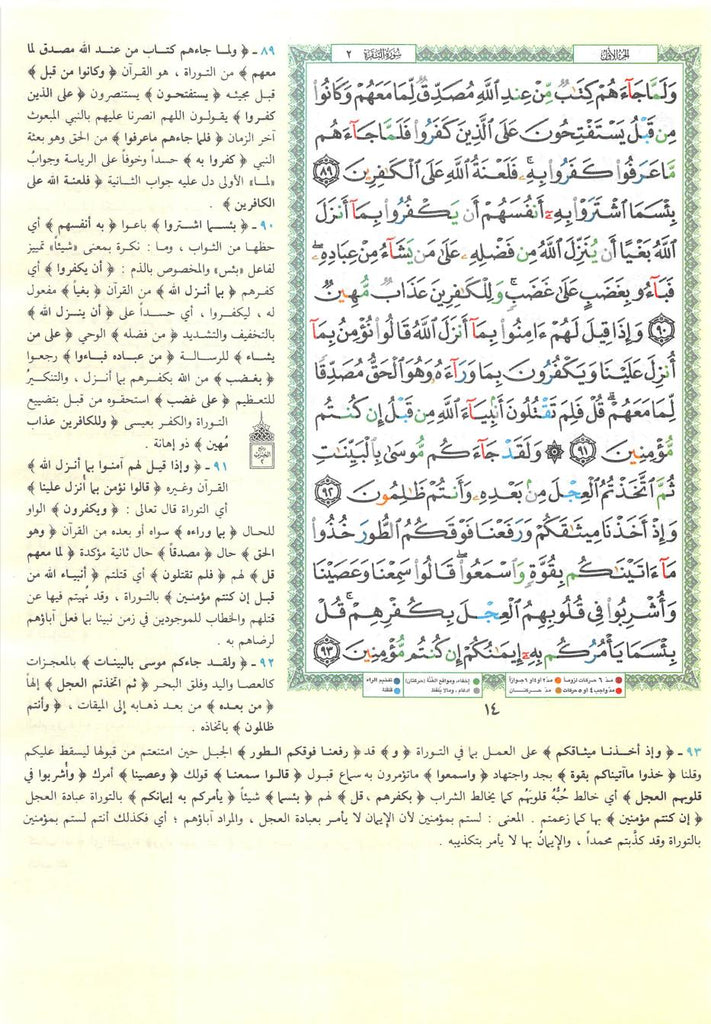 الجزء الأول
سورة البقرة ٢
وَلَمَّا جَآءَهُمْ كِتَٰبٌ مِّنْ عِندِ ٱللَّهِ مُصَدِّقٌ لِّمَا مَعَهُمْ وَكَانُوا۟
مِن قَبْلُ يَسْتَفْتِحُونَ عَلَى ٱلَّذِينَ كَفَرُوا۟ فَلَمَّا جَآءَهُم
مَّا عَرَفُوا۟ كَفَرُوا۟ بِهِۦ ۚ فَلَعْنَةُ ٱللَّهِ عَلَى ٱلْكَٰفِرِينَ ٨٩
بِئْسَمَا ٱشْتَرَوْا۟ بِهِۦٓ أَنفُسَهُمْ أَن يَكْفُرُوا۟ بِمَآ أَنزَلَ
ٱللَّهُ بَغْيًا أَن يُنَزِّلَ ٱللَّهُ مِن فَضْلِهِۦ عَلَىٰ مَن يَشَآءُ مِنْ عِبَادِهِۦ ۖ
فَبَآءُو بِغَضَبٍ عَلَىٰ غَضَبٍ ۚ وَلِلْكَٰفِرِينَ عَذَابٌ مُّهِينٌ
٩٠ وَإِذَا قِيلَ لَهُمْ ءَامِنُوا۟ بِمَآ أَنزَلَ ٱللَّهُ قَالُوا۟ نُؤْمِنُ بِمَآ
أُنزِلَ عَلَيْنَا وَيَكْفُرُونَ بِمَا وَرَآءَهُۥ وَهُوَ ٱلْحَقُّ مُصَدِّقًا
لِّمَا مَعَهُمْ ۗ قُلْ فَلِمَ تَقْتُلُونَ أَنۢبِيَآءَ ٱللَّهِ مِن قَبْلُ إِن كُنتُم
مُّؤْمِنِينَ ٩١ ۞ وَلَقَدْ جَآءَكُم مُّوسَىٰ بِٱلْبَيِّنَٰتِ
ثُمَّ ٱتَّخَذْتُمُ ٱلْعِجْلَ مِنۢ بَعْدِهِۦ وَأَنتُمْ ظَٰلِمُونَ ٩٢
وَإِذْ أَخَذْنَا مِيثَٰقَكُمْ وَرَفَعْنَا فَوْقَكُمُ ٱلطُّورَ خُذُوا۟
مَآ ءَاتَيْنَٰكُم بِقُوَّةٍ وَٱسْمَعُوا۟ ۖ قَالُوا۟ سَمِعْنَا وَعَصَيْنَا
وَأُشْرِبُوا۟ فِى قُلُوبِهِمُ ٱلْعِجْلَ بِكُفْرِهِمْ ۚ قُلْ
بِئْسَمَا يَأْمُرُكُم بِهِۦٓ إِيمَٰنُكُمْ إِن كُنتُم مُّؤْمِنِينَ ٩٣
مدّ ٦ حركات لزوماً مدّ ٢ أو ٤ أو ٦ جوازاً إخفاء، ومواقع الغنّة (حركتان) تفخيم الراء
مدّ واجب ٤ أو ٥ حركات مدّ حركتان إدغام، وما لا يُلفظ قلقلة
١٤
٨٩ ـ ﴿ ولما جاءهم كتاب من عند الله مصدق لما
معهم ﴾ من التوراة ، هو القرآن ﴿ وكانوا من قبل ﴾
قبل مجيئه ﴿ يستفتحون ﴾ يستنصرون ﴿ على الذين
كفروا ﴾ يقولون اللهم انصرنا عليهم بالنبي المبعوث
آخر الزمان ﴿ فلما جاءهم ماعرفوا ﴾ من الحق وهو بعثة
النبي ﴿ كفروا به ﴾ حسداً وخوفاً على الرياسة وجوابُ
«لما» الأولى دل عليه جواب الثانية ﴿ فلعنة الله على
الكافرين ﴾ .
٩٠ ـ ﴿ بئسما اشتروا ﴾ باعوا ﴿ به أنفسهم ﴾ أي
حظها من الثواب ، وما : نكرة بمعنى «شيئاً» تمييز
لفاعل «بئس» والمخصوص بالذم : ﴿ أن يكفروا ﴾ أي
كفرهم ﴿ بما أنزل الله ﴾ من القرآن ﴿ بغياً ﴾ مفعول
له ، ليكفروا ، أي حسداً على ﴿ أن ينزل الله ﴾
بالتخفيف والتشديد ﴿ من فضله ﴾ الوحي ﴿ على من
يشاء ﴾ للرسالة ﴿ من عباده فباءوا ﴾ رجعوا
﴿ بغضب ﴾ من الله بكفرهم بما أنزل ، والتنكيرُ
للتعظيم ﴿ على غضب ﴾ استحقوه من قبل بتضييع
التوراة والكفر بعيسى ﴿ وللكافرين عذاب
مُهين ﴾ ذو إهانة .
٩١ ـ ﴿ وإذا قيل لهم آمنوا بما أنزل الله ﴾
القرآن وغيره ﴿ قالوا نؤمن بما أُنزل علينا ﴾
أي التوراة قال تعالى : ﴿ ويكفرون ﴾ الواو
للحال ﴿ بما وراءه ﴾ سواه أو بعده من القرآن ﴿ وهو
الحق ﴾ حال ﴿ مصدقاً ﴾ حال ثانية مؤكدة ﴿ لما معهم
قل ﴾ لهم ﴿ فلم تقتلون ﴾ أي قتلتم ﴿ أنبياء الله من
قبل إن كنتم مؤمنين ﴾ بالتوراة ، وقد نُهيتم فيها عن
قتلهم والخطاب للموجودين في زمن نبينا بما فعل آباؤهم
لرضاهم به .
٩٢ ـ ﴿ ولقد جاءكم موسى بالبينات ﴾ بالمعجزات
كالعصا واليد وفلق البحر ﴿ ثم اتخذتم العجل ﴾ إلهاً
﴿ من بعده ﴾ من بعد ذهابه إلى الميقات ، ﴿ وأنتم
ظالمون ﴾ باتخاذه .
٩٣ ـ ﴿ وإذ أخذنا ميثاقكم ﴾ على العمل بما في التوراة ﴿ و ﴾ قد ﴿ رفعنا فوقكم الطور ﴾ الجبل حين امتنعتم من قبولها ليسقط عليكم
وقلنا ﴿ خذوا ماآتيناكم بقوة ﴾ بجد واجتهاد ﴿ واسمعوا ﴾ ماتؤمرون به سماع قبول ﴿ قالوا سمعنا ﴾ قولك ﴿ وعصينا ﴾ أمرك ﴿ وأُشربوا في
قلوبهم العجل ﴾ أي خالط حُبُّه قلوبَهُم كما يخالط الشراب ﴿ بكفرهم ، قل ﴾ لهم ﴿ بئسما ﴾ شيئاً ﴿ يأمركم به إيمانكم ﴾ بالتوراة عبادة العجل
﴿ إن كنتم مؤمنين ﴾ بها كما زعمتم . المعنى : لستم بمؤمنين لأن الإيمان لا يأمر بعبادة العجل ، والمراد آباؤهم ؛ أي فكذلك أنتم لستم بمؤمنين
بالتوراة وقد كذّبتم محمداً ، والإيمانُ بها لا يأمر بتكذيبه .